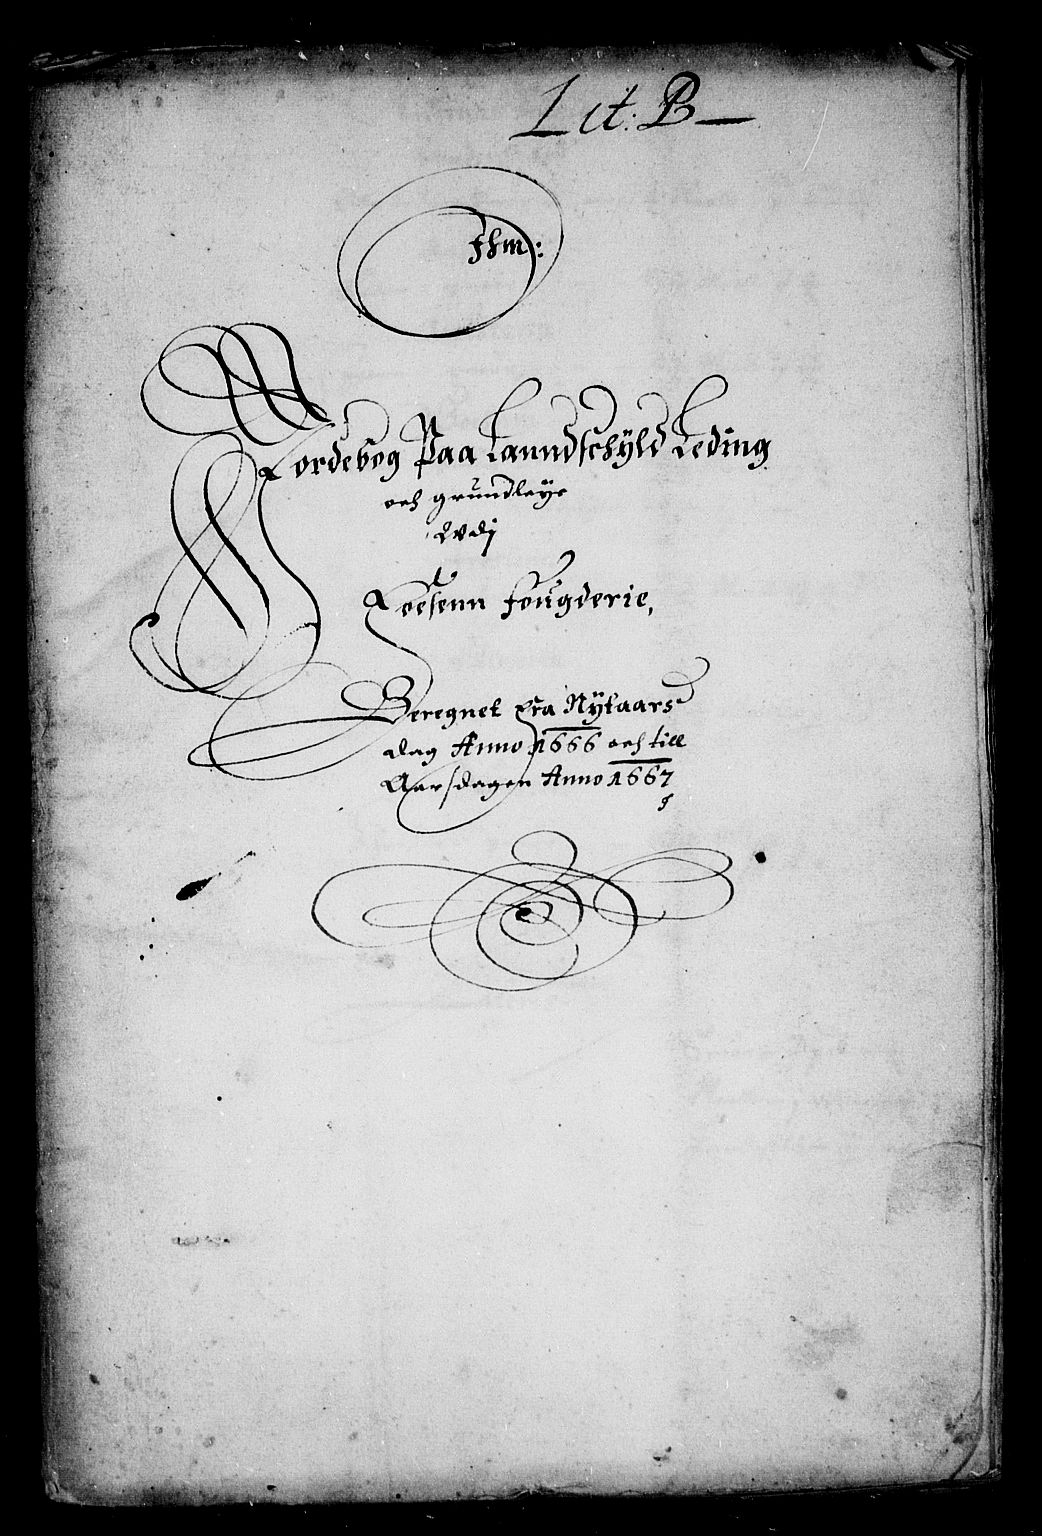 Lit: B
Jhm:
Jordebog Paa Lanndschyld Leding
och grundleye
Udj
Foesenn fougderie,
Beregnet fra Nytaars
dag Anno 1666 och till
Aarsdagen Anno 1667